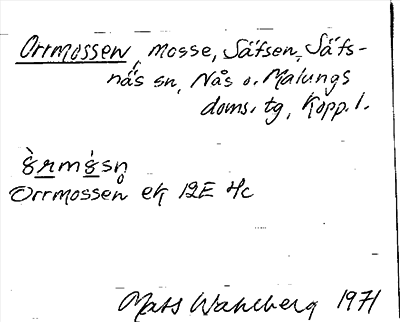 Orrmossen, mosse, Säfsen, Säfs-
näs sn, Nås o. Malungs
doms. tg, Kopp. l.
Orrmossen ek 12E 4c
Mats Wahlberg 1971